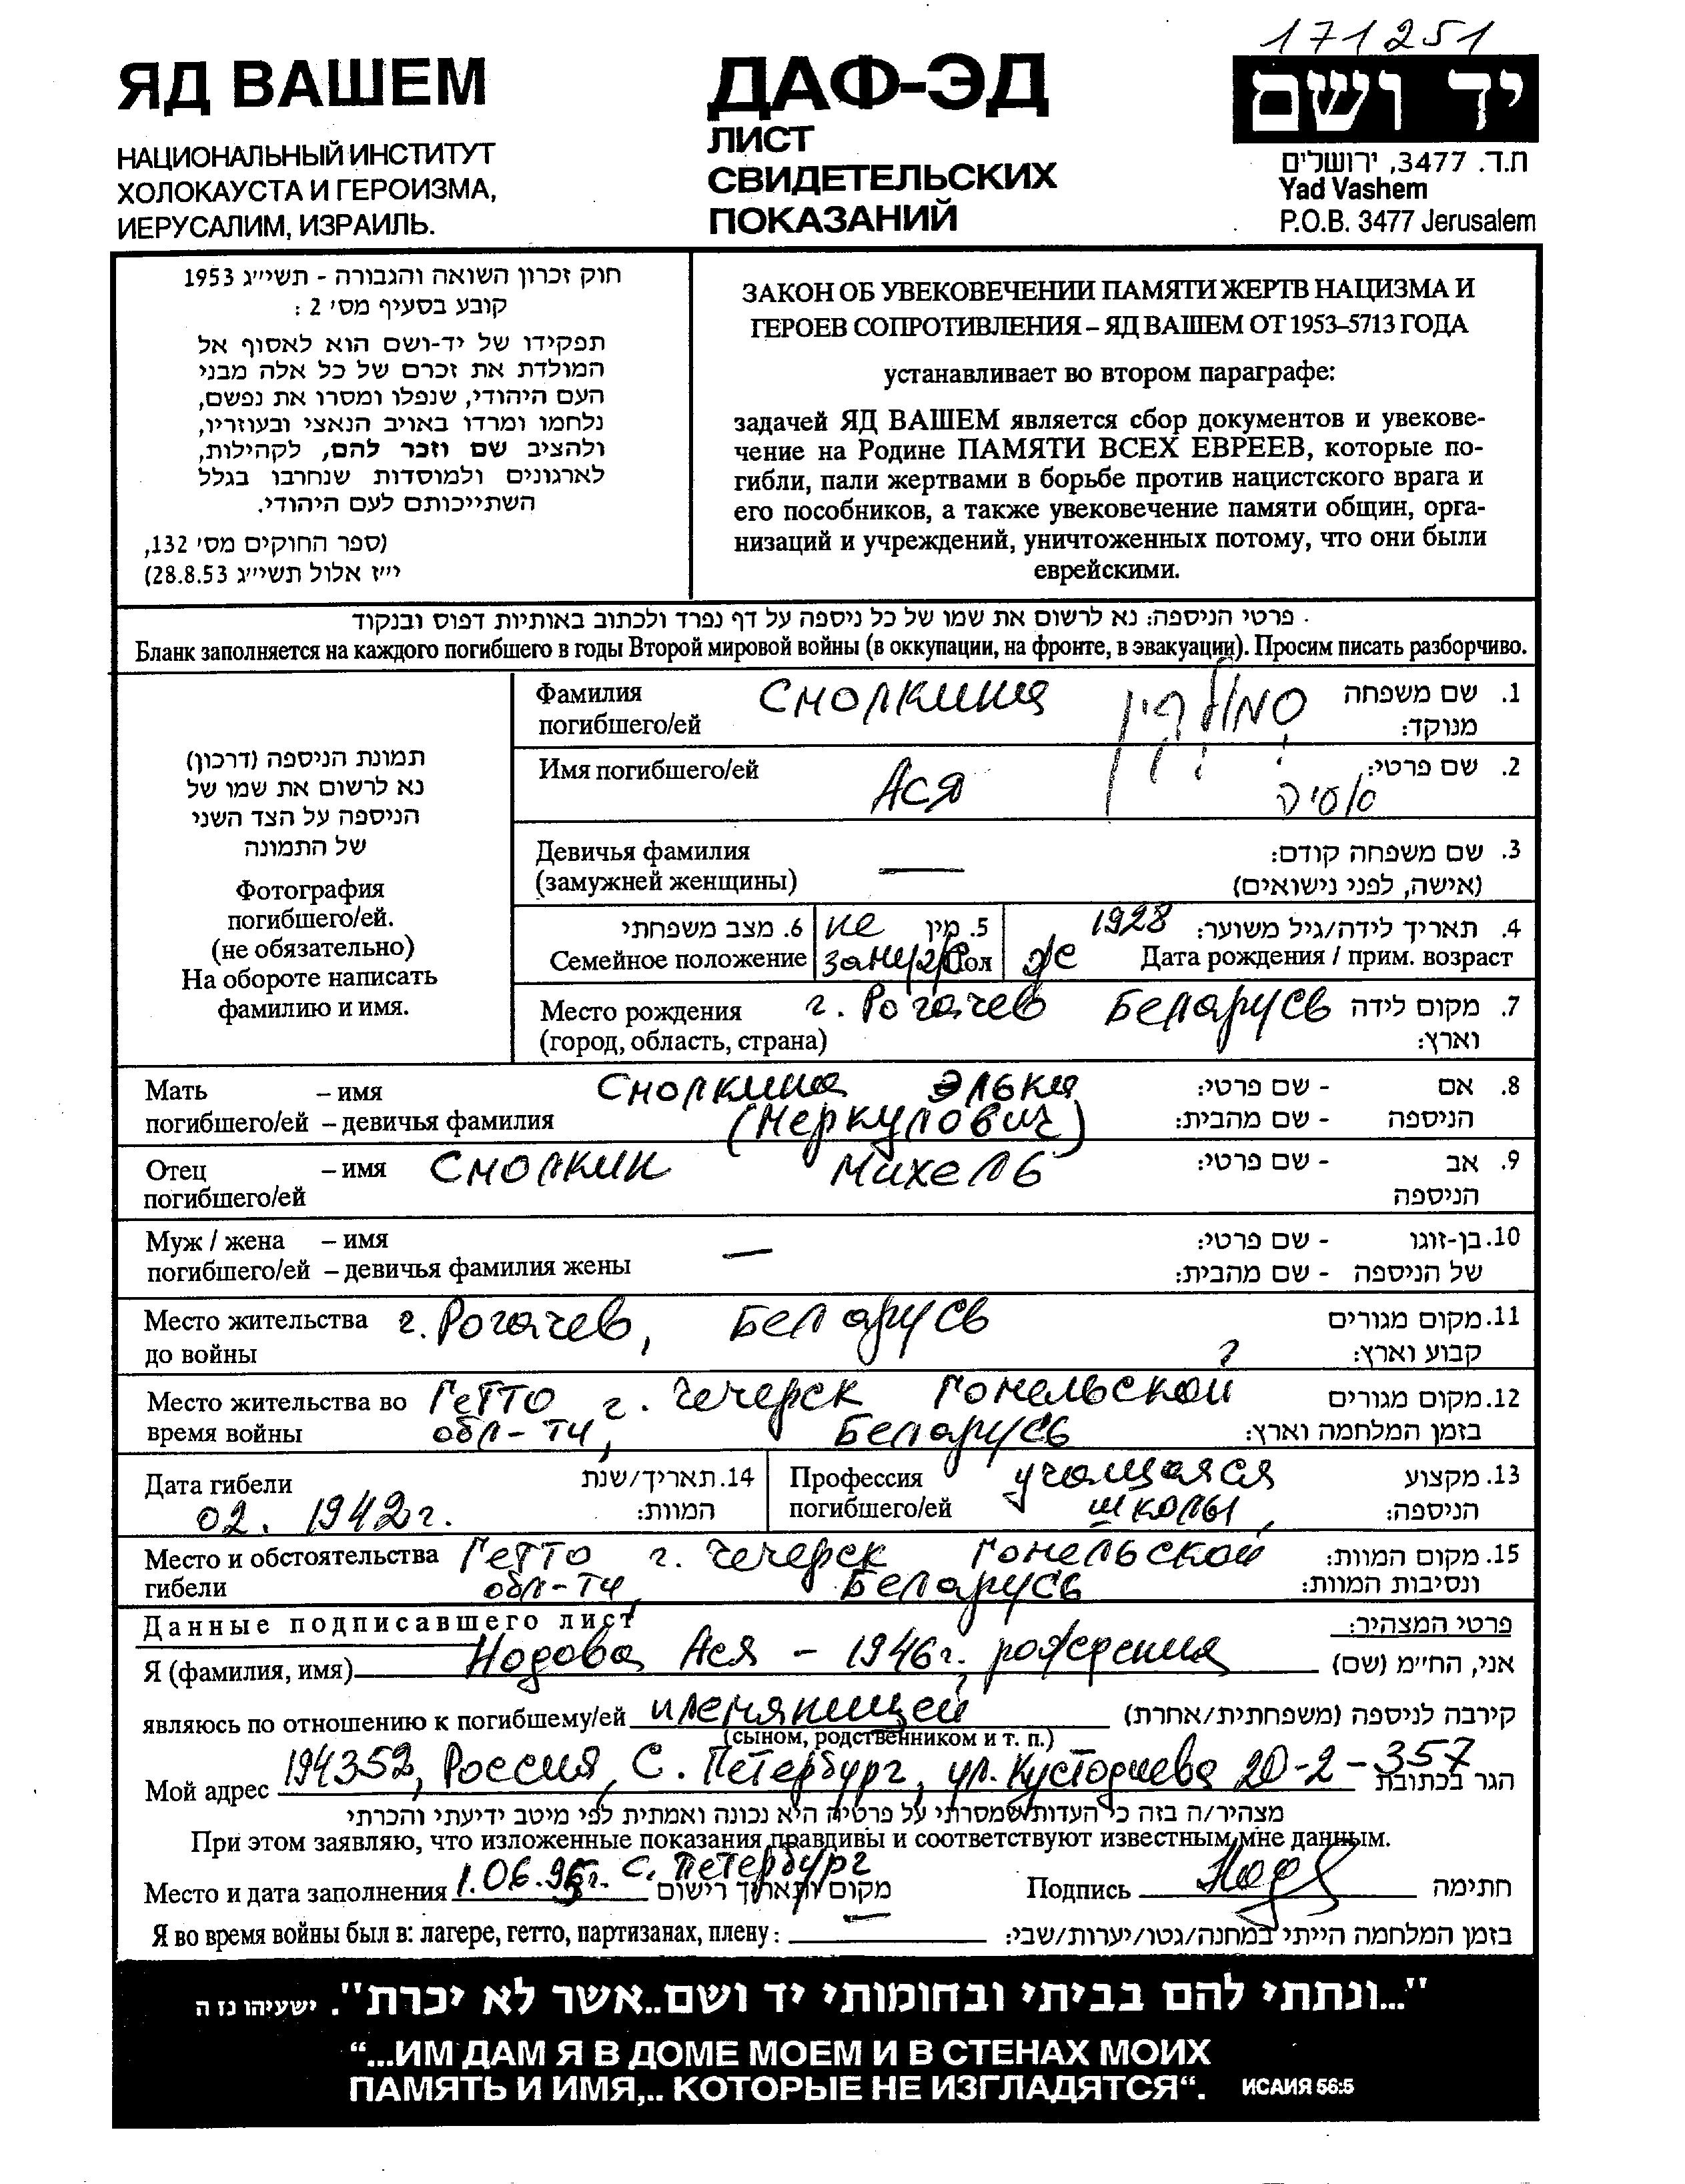 171251
ЯД ВАШЕМ
НАЦИОНАЛЬНЫЙ ИНСТИТУТ
ХОЛОКАУСТА И ГЕРОИЗМА,
ИЕРУСАЛИМ, ИЗРАИЛЬ.
ДАФ-ЭД
ЛИСТ
СВИДЕТЕЛЬСКИХ
ПОКАЗАНИЙ
יד ושם
ת.ד. 3477, ירושלים
Yad Vashem
P.O.B. 3477 Jerusalem
חוק זכרון השואה והגבורה - תשי״ג 1953
קובע בסעיף מס׳ 2 :
תפקידו של יד-ושם הוא לאסוף אל
המולדת את זכרם של כל אלה מבני
העם היהודי, שנפלו ומסרו את נפשם,
נלחמו ומרדו באויב הנאצי ובעוזריו,
ולהציב שם וזכר להם, לקהילות,
לארגונים ולמוסדות שנחרבו בגלל
השתייכותם לעם היהודי.
(ספר החוקים מס׳ 132,
י״ז אלול תשי״ג 28.8.53)
ЗАКОН ОБ УВЕКОВЕЧЕНИИ ПАМЯТИ ЖЕРТВ НАЦИЗМА И
ГЕРОЕВ СОПРОТИВЛЕНИЯ – ЯД ВАШЕМ ОТ 1953–5713 ГОДА
устанавливает во втором параграфе:
задачей ЯД ВАШЕМ является сбор документов и увекове-
чение на Родине ПАМЯТИ ВСЕХ ЕВРЕЕВ, которые по-
гибли, пали жертвами в борьбе против нацистского врага и
его пособников, а также увековечение памяти общин, орга-
низаций и учреждений, уничтоженных потому, что они были
еврейскими.
פרטי הניספה: נא לרשום את שמו של כל ניספה על דף נפרד ולכתוב באותיות דפוס ובנקוד
Бланк заполняется на каждого погибшего в годы Второй мировой войны (в оккупации, на фронте, в эвакуации). Просим писать разборчиво.
תמונת הניספה (דרכון)
נא לרשום את שמו של
הניספה על הצד השני
של התמונה
Фотография
погибшего/ей.
(не обязательно)
На обороте написать
фамилию и имя.
Фамилия Смолкина סמולקין שם משפחה .1
погибшего/ей מנוקד:
Имя погибшего/ей Ася אסיה שם פרטי: .2
Девичья фамилия — שם משפחה קודם: .3
(замужней женщины) (אישה, לפני נישואים)
6. מצב משפחתי не 5. מין 1928 תאריך לידה/גיל משוער: .4
Семейное положение замужем Пол ж Дата рождения / прим. возраст
Место рождения г. Рогачев Беларусь מקום לידה .7
(город, область, страна) וארץ:
Мать – имя Смолкина Элька - שם פרטי: אם .8
погибшего/ей – девичья фамилия (Меркулович) - שם מהבית: הניספה
Отец – имя Смолкин Михель - שם פרטי: אב .9
погибшего/ей הניספה
Муж / жена – имя — - שם פרטי: בן-זוגו .10
погибшего/ей – девичья фамилия жены - שם מהבית: של הניספה
Место жительства г. Рогачев, Беларусь מקום מגורים .11
до войны קבוע וארץ:
Место жительства во Гетто г. Чечерск Гомельской מקום מגורים .12
время войны обл-ти, Беларусь בזמן המלחמה וארץ:
Дата гибели 14. תאריך/שנת Профессия учащаяся מקצוע .13
02. 1942г. המוות: погибшего/ей школы הניספה:
Место и обстоятельства Гетто г. Чечерск Гомельской מקום המוות: .15
гибели обл-ти, Беларусь ונסיבות המוות:
Данные подписавшего лист פרטי המצהיר:
Я (фамилия, имя) Нодова Ася – 1946г. рождения אני, הח״מ (שם)
являюсь по отношению к погибшему/ей племянницей קירבה לניספה (משפחתית/אחרת)
(сыном, родственником и т. п.)
Мой адрес 194352, Россия, С. Петербург, ул. Кустодиева 20-2-357 הגר בכתובת
מצהיר/ה בזה כי העדות שמסרתי על פרטיה היא נכונה ואמתית לפי מיטב ידיעתי והכרתי
При этом заявляю, что изложенные показания правдивы и соответствуют известным мне данным.
Место и дата заполнения 1.06.95г. С. Петербург מקום ותאריך רישום Подпись חתימה
Я во время войны был в: лагере, гетто, партизанах, плену: — בזמן המלחמה הייתי במחנה/גטו/יערות/שבי:
"...ונתתי להם בביתי ובחומותי יד ושם..אשר לא יכרת". ישעיהו נז ה
“...ИМ ДАМ Я В ДОМЕ МОЕМ И В СТЕНАХ МОИХ
ПАМЯТЬ И ИМЯ,.. КОТОРЫЕ НЕ ИЗГЛАДЯТСЯ“. ИСАИЯ 56:5